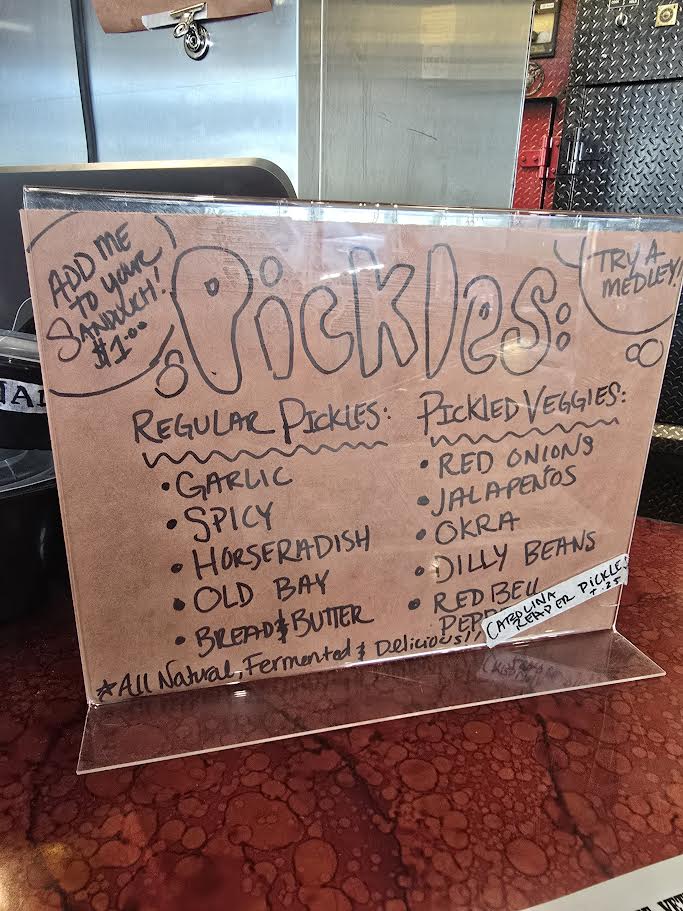 ADD ME
TO YOUR
SANDWICH!
$1.00
Pickles:
TRY A
MEDLEY!
REGULAR PICKLES:
• GARLIC
• SPICY
• HORSERADISH
• OLD BAY
• BREAD & BUTTER
PICKLED VEGGIES:
• RED ONIONS
• JALAPEÑOS
• OKRA
• DILLY BEANS
• RED BELL
CAROLINA
REAPER PICKLE!
+.25
*All Natural, Fermented & Delicious!!